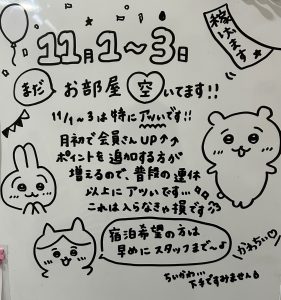 稼げます
11月1〜3日
まだ お部屋 空いてます!!
11/1〜3は特にアツいです!!
月初で会員さんUP↑↑
ポイントを追加する方が
増えるので、普段の連休
以上にアツいです…
これは入らなきゃ損です
宿泊希望の方は
早めにスタッフまで〜♪
ちいかわ…
下手ですみません